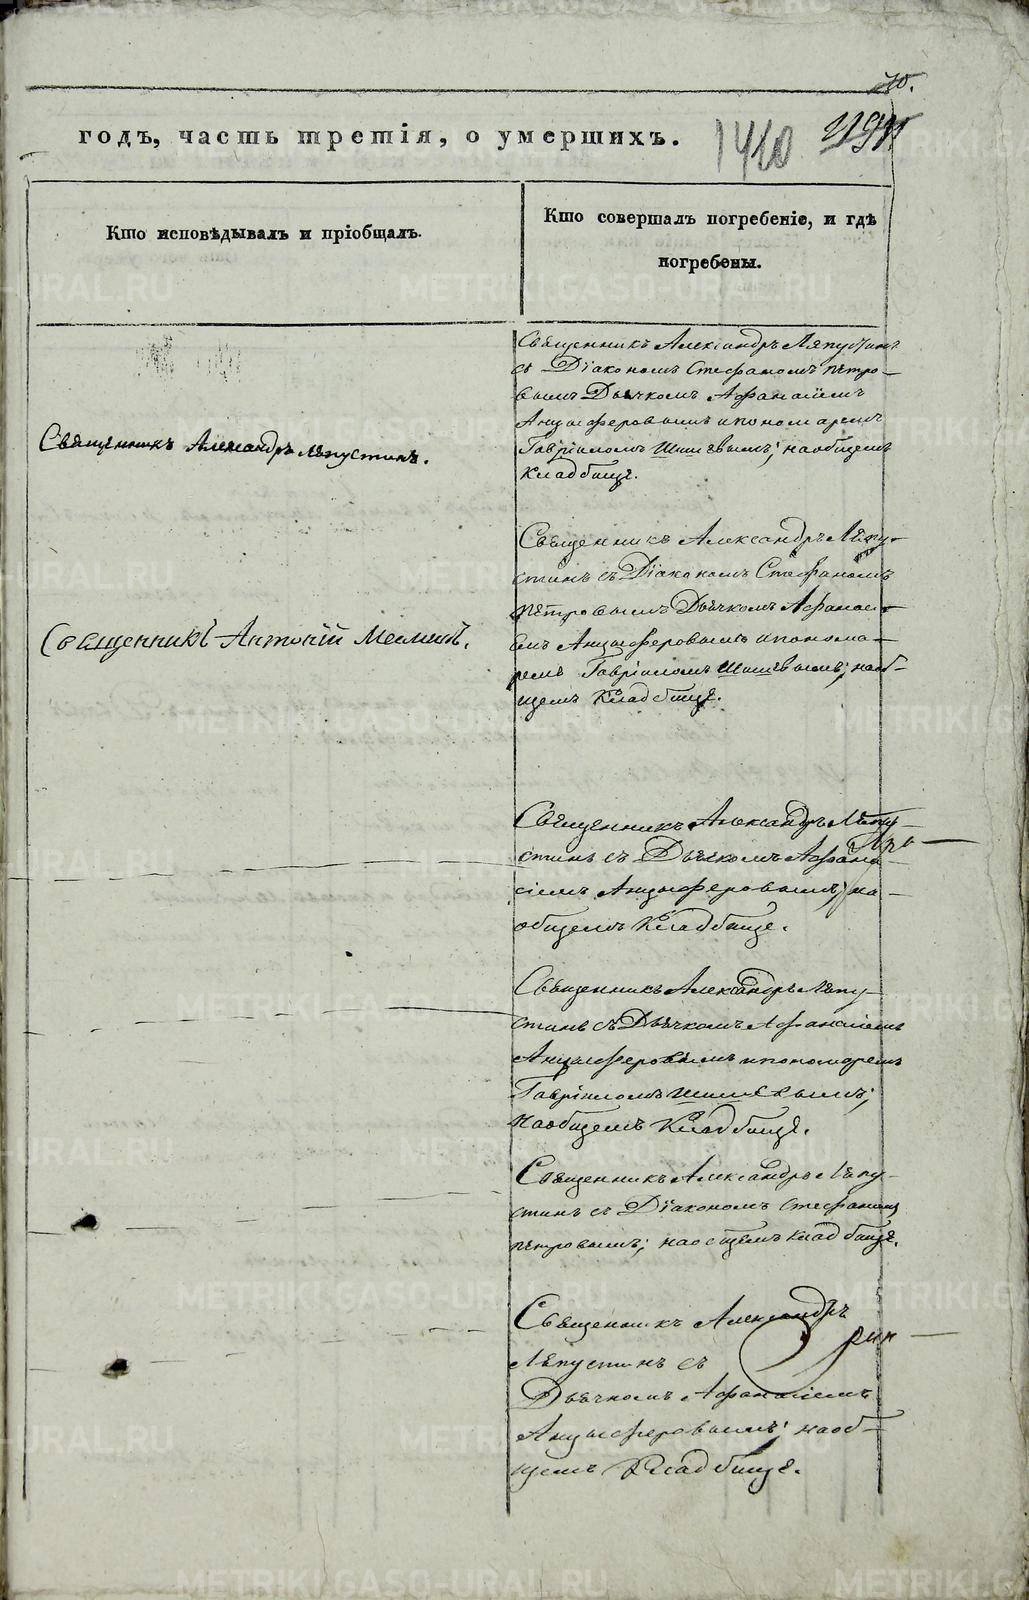 70.
годъ, часть третія, о умершихъ.
1410
Кто исповѣдывалъ и пріобщалъ.
Кто совершалъ погребеніе, и гдѣ
погребены.
Священникъ Александръ Ляпустинъ
съ Діакономъ Стефаномъ Петро-
вымъ Дьячкомъ Афанасіемъ
Анцыферовымъ и пономаремъ
Гавріиломъ Шишевымъ; на общемъ
кладбищѣ.
Священникъ Александръ Ляпустинъ.
Священникъ Александръ Ляпу-
стинъ съ Діакономъ Стефаномъ
Петровымъ Дьячкомъ Афанасі-
емъ Анцыферовымъ и понома-
ремъ Гавріиломъ Шишевымъ; на об-
щемъ Кладбищѣ.
Священникъ Антоній
Священникъ Александръ Ляпу-
стинъ съ Дьячкомъ Афана-
сіемъ Анцыферовымъ; на
общемъ Кладбище.
Священникъ Александръ Ляпу-
стинъ съ Дьячкомъ Афанасіемъ
Анцыферовымъ и пономаремъ
Гавріиломъ Шишевымъ;
На общемъ Кладбищѣ.
Священникъ Александръ Ляпу-
стинъ съ Діакономъ Стефаномъ
Петровымъ; на общемъ кладбищѣ.
Священникъ Александръ
Ляпустинъ съ
Дьячкомъ Афанасіемъ
Анцыферовымъ; на об-
щемъ Кладбищѣ.
METRIKI.GASO-URAL.RU